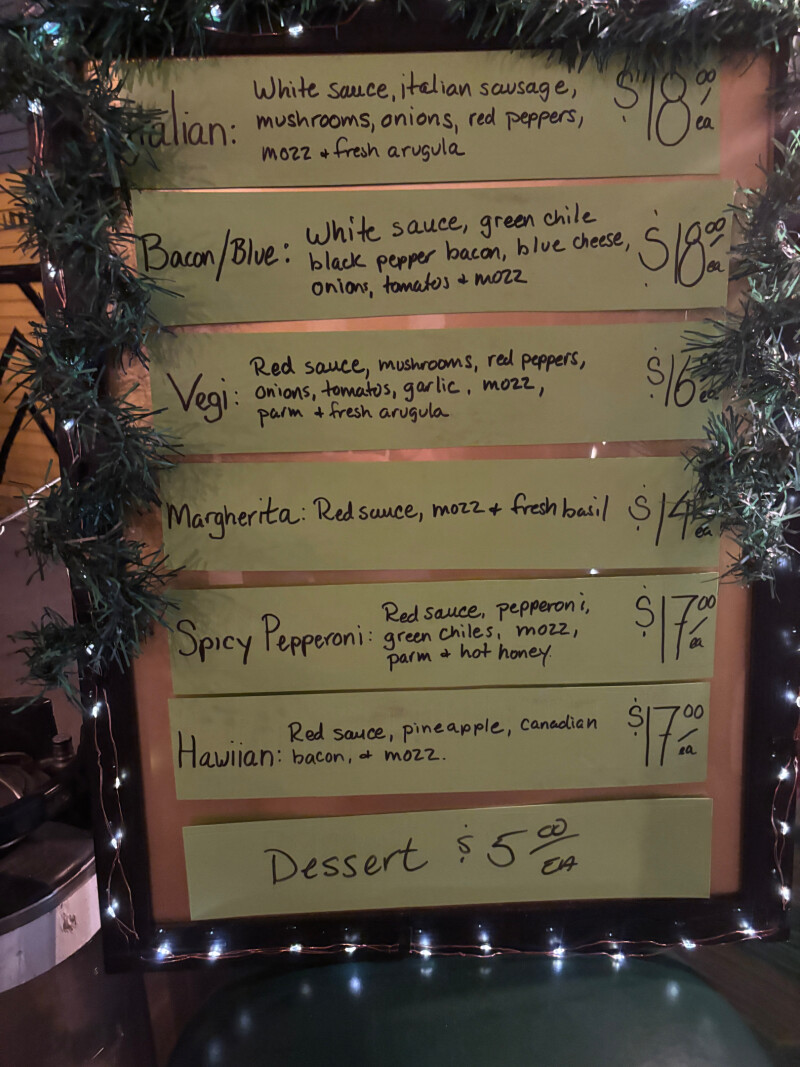 Italian: White sauce, italian sausage, $18.00/ea
mushrooms, onions, red peppers,
mozz + fresh arugula
Bacon/Blue: White sauce, green chile $18.00/ea
black pepper bacon, blue cheese,
onions, tomatos + mozz
Vegi: Red sauce, mushrooms, red peppers, $16 ea
onions, tomatos, garlic, mozz,
parm + fresh arugula
Margherita: Red sauce, mozz + fresh basil $14 ea
Spicy Pepperoni: Red sauce, pepperoni, $17.00/ea
green chiles, mozz,
parm + hot honey
Hawiian: Red sauce, pineapple, canadian $17.00/ea
bacon, & mozz.
Dessert $5.00/EA